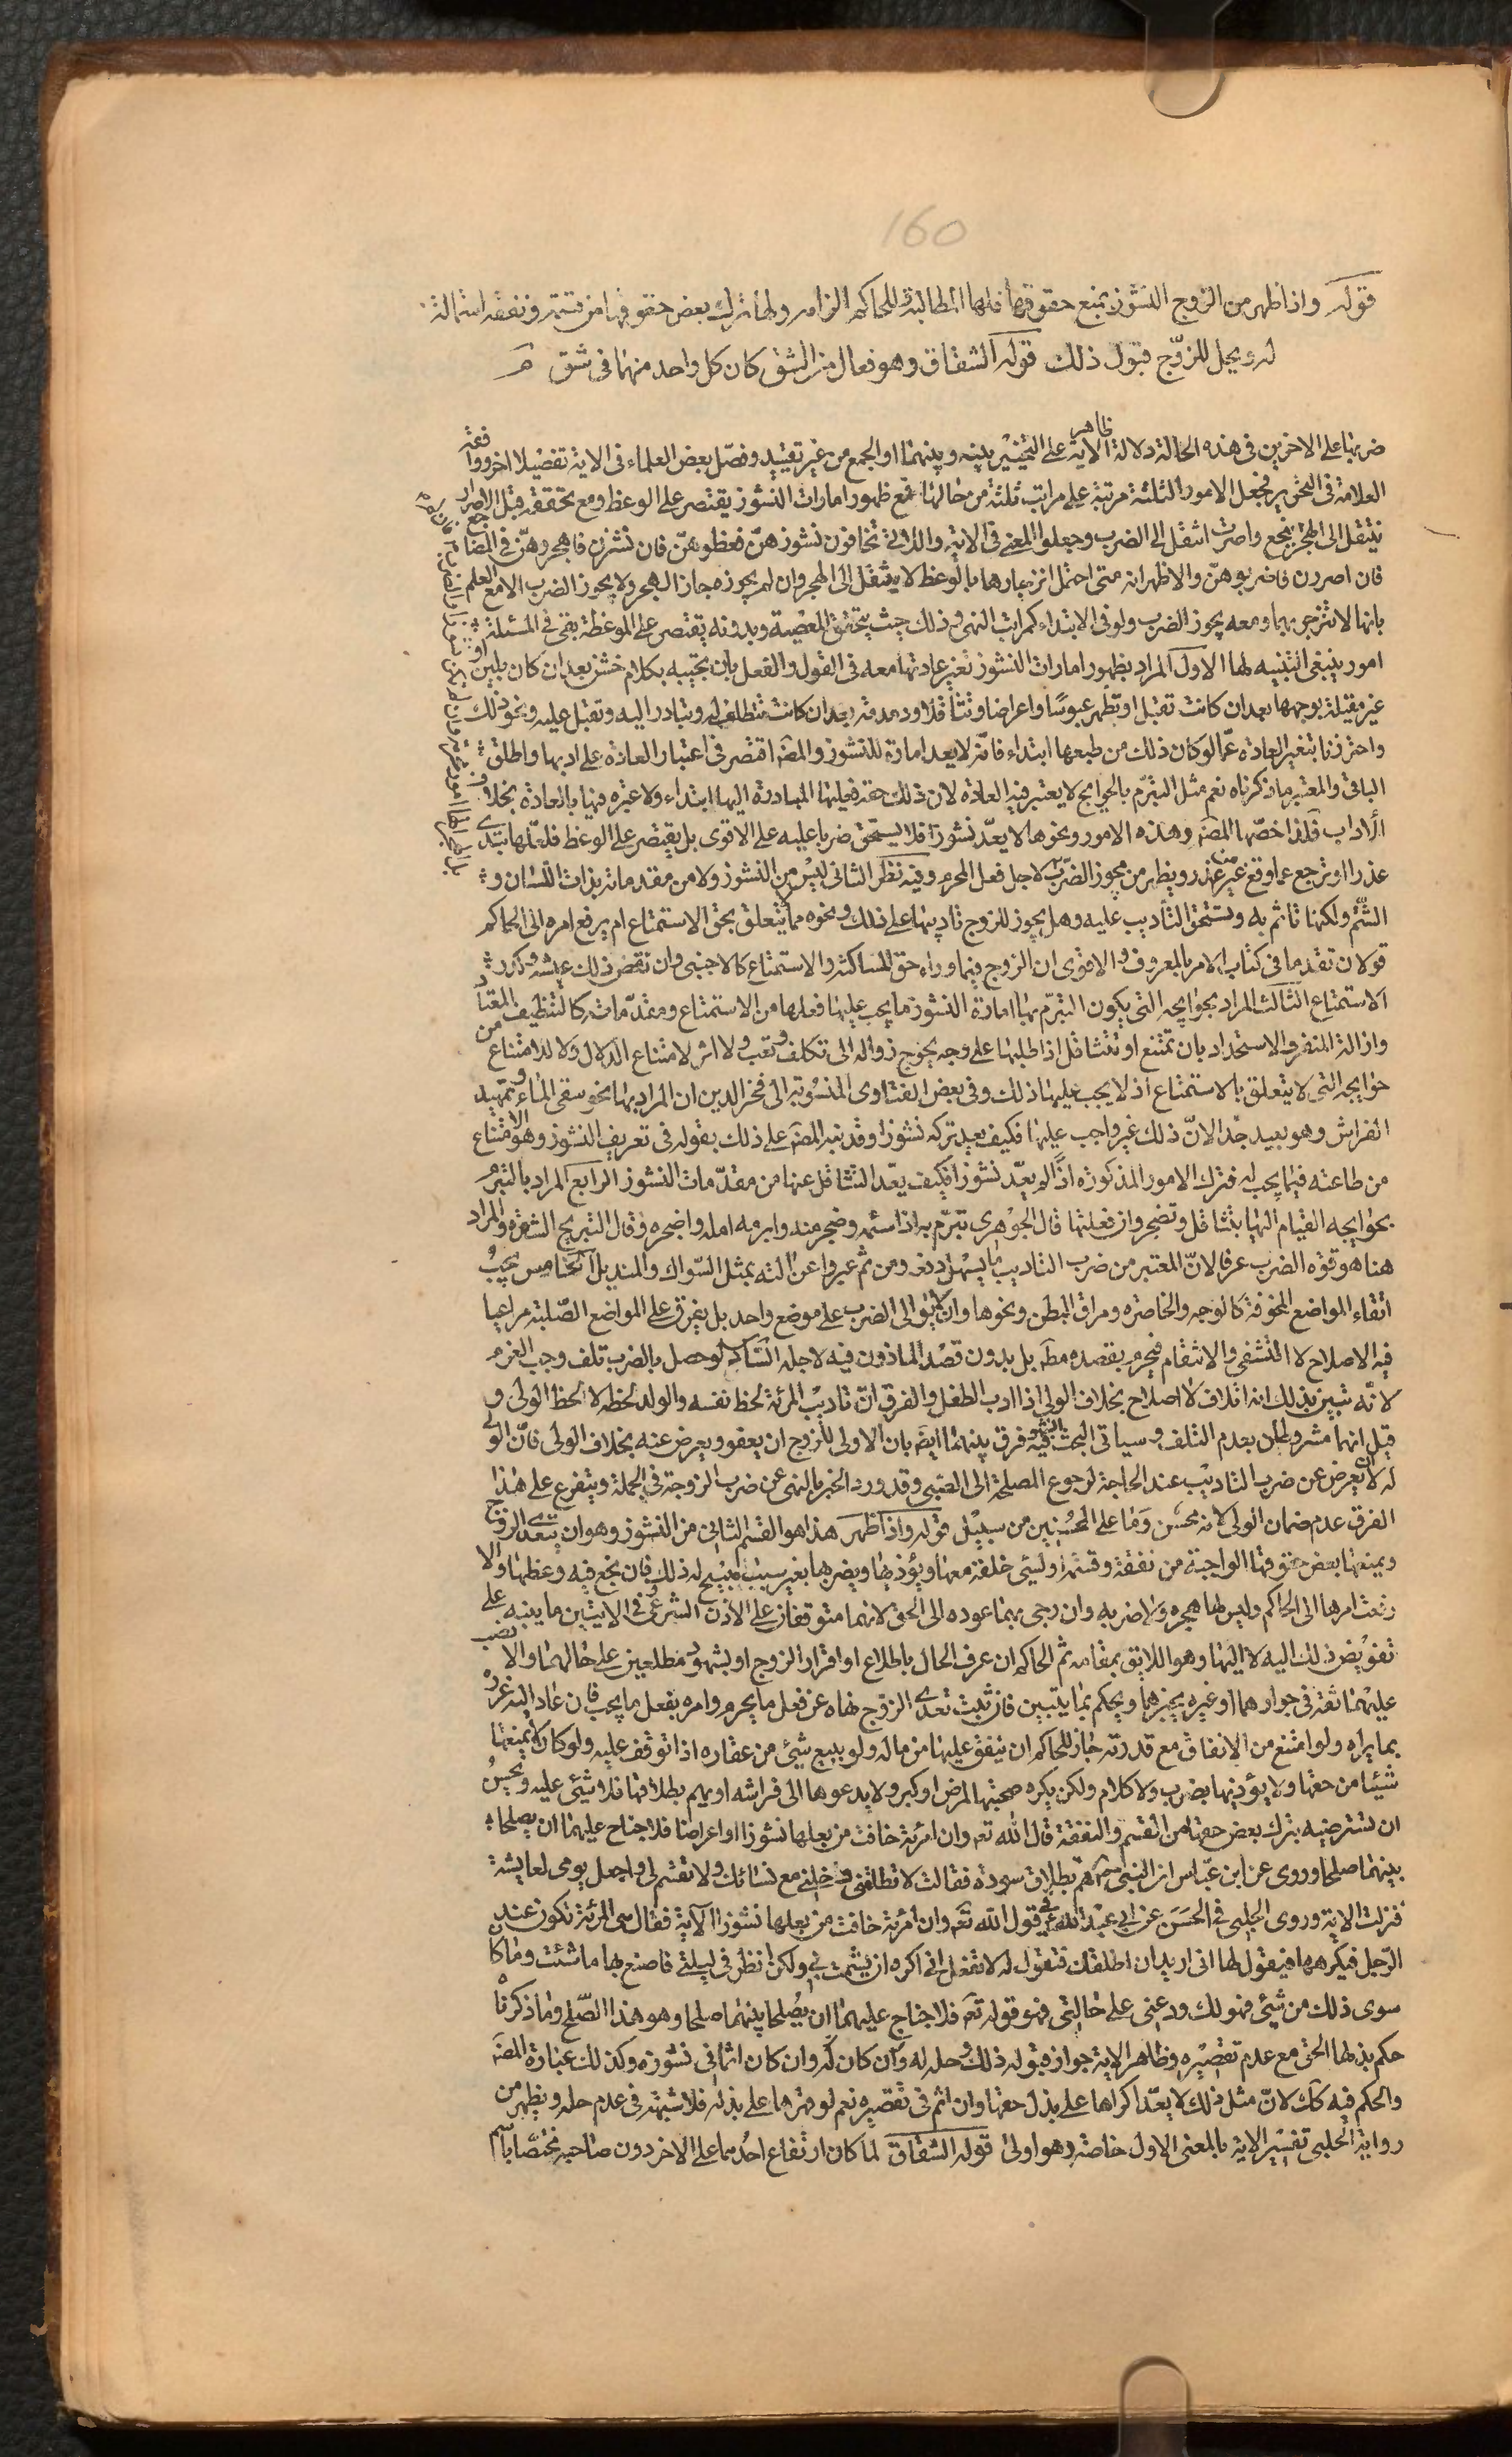 160
قوله واذا ظهر من الزوج النشوز بمنع حقوقها فلها المطالبة وللحاكم الزامه ولها ترك بعض حقوقها من قسمة ونفقة استمالة
له ويحل للزوج قبول ذلك قوله الشقاق وهو فعال من الشق كان كل واحد منهما فى شق
ضربها على الاخرين فى هذه الحالة دلالة ظاهر الاية على التخيير بينه وبينهما او الجمع من غير تقييد وفصّل بعض العلماء فى الاية تفصيلا اخر ووافقه
العلامة فى التحرير فجعل الامور الثلثة مرتبة على مراتب ثلثة من حالها فمع ظهور امارات النشوز يقتصر على الوعظ ومع تحققه قبل الاصرار
ينتقل الى الهجر فان لم ينجع واصرت انتقل الى الضرب وجعلوا المعنى فى الاية واللاتى تخافون نشوزهنّ فعظوهنّ فان نشزن فاهجروهنّ فى المضاجع
فان اصررن فاضربوهنّ والاظهر انه متى احتمل انزجارها بالوعظ لا ينتقل الى الهجر وان لم يجوزه جاز الهجر ولا يجوز الضرب الا مع العلم
بانها لا تنزجر بهما ومعه يجوز الضرب ولو فى الابتداء كمراتب النهى و ذلك حيث يتحقق المعصية وبدونه يقتصر على الموعظة بقى فى المسئلة
امور ينبغى التنبيه لها الاول المراد بظهور امارات النشوز تغير عادتها معه فى القول والفعل بان تجيبه بكلام خشن بعد ان كان بلين او
غير مقبلة بوجهها بعد ان كانت تقبل او تظهر عبوسًا واعراضا وتثاقلا ودمدمة بعد ان كانت تتطلف له وتبادر اليه وتقبل عليه ونحو ذلك
واحترزنا بتغير العادة عمّا لو كان ذلك من طبعها ابتداء فانّه لا يعد امارة للنشوز والمصَ اقتصر فى اعتبار العادة على ادبها واطلق
الباقى والمعتبر ما ذكرناه نعم مثل التبرّم بالحوايج لا يعتبر فيه العادة لان ذلك حقه فعليها المبادرة اليها ابتداء ولا عبرة فيها بالعادة بخلاف
الآداب فلذا خصّها المصَ وهذه الامور ونحوها لا يعدّ نشوزا فلا يستحق ضربا عليه على الاقوى بل يقتصر على الوعظ فلعلّها تبدى
عذرا او ترجع عما وقع منها من غير عذر ويظهر من مجوز الضرب لاجل فعل المحرم وفيه نظر الثانى ليس من النشوز ولا من مقدماته بذاة اللسان و
الشّتم ولكنها تاثم به وتستحق التأديب عليه وهل يجوز للزوج تاديبها على ذلك ونحوه مما يتعلق بحق الاستمتاع ام يرفع امره الى الحاكم
قولان تقدما فى كتاب الامر بالمعروف و الاقوى ان الزوج فيما وراء حق المساكنة والاستمتاع كالاجنبى وان نقص ذلك عيشه وكدر
الاستمتاع الثالث المراد بحوايجه التى يكون التبرّم بها امارة النشوز ما يجب عليها فعلها من الاستمتاع ومقدّماته كالتنظيف المعتاد
وازالة المنفر والاستحداد بان تمتنع او تتثاقل اذا طلبها على وجه يحوج زواله الى تكلف وتعب ولا اثر لامتناع الدلال ولا للامتناع من
حوايجه التى لا يتعلق بالاستمتاع اذ لا يجب عليها ذلك وفى بعض الفتاوى المنسوبة الى فخر الدين ان المراد بها نحو سقى الماء وتمهيد
الفراش وهو بعيد جدّا لانّ ذلك غير واجب عليها فكيف يعد تركه نشوزا وقد نبه المصَ على ذلك بقوله فى تعريف النشوز وهو الامتناع
من طاعته فيما يجب له فترك الامور المذكورة اذَا لم يعدّ نشوزا فكيف يعدّ التثاقل عنها من مقدّمات النشوز الرابع المراد بالتبرّم
بحوايجه القيام اليها بتثاقل وتضجر وان فعلتها قال الجوهرى تبرّم به اذا سئمه وضجر منه وابرمه امله واضجره وقال التبريح الشدة والمراد
هنا هو قوة الضرب عرفا لانّ المعتبر من ضرب التاديب ما يسهل دفعه ومن ثم عبروا عن الته بمثل السّواك والمنديل الخامس يجب
اتقاء المواضع المخوفة كالوجه والخاصرة ومراق البطن ونحوها وان لا يوالى الضرب على موضع واحد بل يفرق على المواضع الصّلبة مراعيا
فيه الاصلاح لا التشفى والانتقام فيحرم بقصده مطَ بل بدون قصد الماذون فيه لاجله السادس لو حصل بالضرب تلف وجب الغرم
لانّه تبيّن بذلك انه اتلاف لا اصلاح بخلاف الولى اذا ادب الطفل والفرق انّ تاديب المرئة لحظ نفسه والولد لحظه لا لحظ الولى و
قيل انهما مشروطان بعدم التلف وسياتى البحث فيه فرق بينهما ايضَ بان الاولى للزوج ان يعفو ويعرض عنه بخلاف الولى فانّ الولى
له لا يعرض عن ضرب التاديب عند الحاجة لرجوع المصلحة الى الصّبى وقد ورد الخبر بالنهى عن ضرب الزوجة فى الجملة ويتفرع على هذا
الفرق عدم ضمان الولى لانه محسن وَما على المحسنين من سبيل قوله واذا ظهر هذا هو القسم الثانى من النشوز وهو ان يتعدى الزوج
ويمنعها بعض حقوقها الواجبة من نفقة وقسمة او يسئ خلقه معها ويؤذيها ويضربها بغير سبب مبيح له ذلك فان نجع فيه وعظها والا
رفعت امرها الى الحاكم وليس لها هجره ولا ضربه وان رجى بهما عوده الى الحق لانهما متوقفان على الاذن الشرعى وفى الايتين ما ينبه على
تفويض ذلك اليه لا اليها وهو اللايق بمقامه ثم الحاكم ان عرف الحال باطلاع او اقرار الزوج او بشهود مطلعين على حالهما والا نصب
عليهما ثقة فى جوارهما او غيره يخبرها ويحكم بما يتبين فان ثبت تعدى الزوج نهاه عن فعل ما يحرم وامره بفعل ما يجب فان عاد اليه عزره
بما يراه ولو امتنع من الانفاق مع قدرته جاز للحاكم ان ينفق عليها من ماله ولو ببيع شيئ من عقاره اذا توقف عليه ولو كان لا يمنعها
شيئا من حقها ولا يؤذيها بضرب ولا كلام ولكن يكره صحبتها لمرض او كبر ولا يدعوها الى فراشه او يهم بطلاقها فلا شيئ عليه ويحسن
ان تسترضيه بترك بعض حقها من القسم والنفقة قال الله تعَ وان امرئة خافت من بعلها نشوزا او اعراضا فلا جناح عليهما ان يصلحا
بينهما صلحا وروى عن ابن عبّاس ان النبى هم بطلاق سودة فقالت لا تطلقنى وخلنى مع نسائك ولا تقسم لى واجعل يومى لعايشة
فنزلت الاية وروى الحلبى فى الحسن عن ابى عبد الله فى قول الله تعَ وان امرئة خافت من بعلها نشوزا الآية فقال هى المرئة تكون عند
الرّجل فيكرهها فيقول لها انى اريد ان اطلقك فتقول له لا تفعل انى اكره ان يشمت بى ولكن انظر فى ليلتى فاصنع بها ما شئت وما كان
سوى ذلك من شيئ فهو لك ودعنى على حالتى فهو قوله تعَ فلا جناح عليهما ان يُصلحا بينهما صلحا وهو هذا الصّلح وما ذكرناه
حكم بذلها الحق مع عدم تقصيره وظاهر الاية جواز قبوله ذلك وحله له وان كان له وان كان اثما فى نشوزه وكذلك عبارة المصَ
والحكم فيه كك لانّ مثل ذلك لا يعدّ اكراها على بذل حقها وان اثم فى تقصيره نعم لو قهرها على بذله فلا شبهة فى عدم حله ويظهر من
رواية الحلبى تفسير الاية بالمعنى الاول خاصة وهو اولى قوله الشقاق لما كان ارتفاع احدهما على الاخر دون صاحبه مختصّا باسم